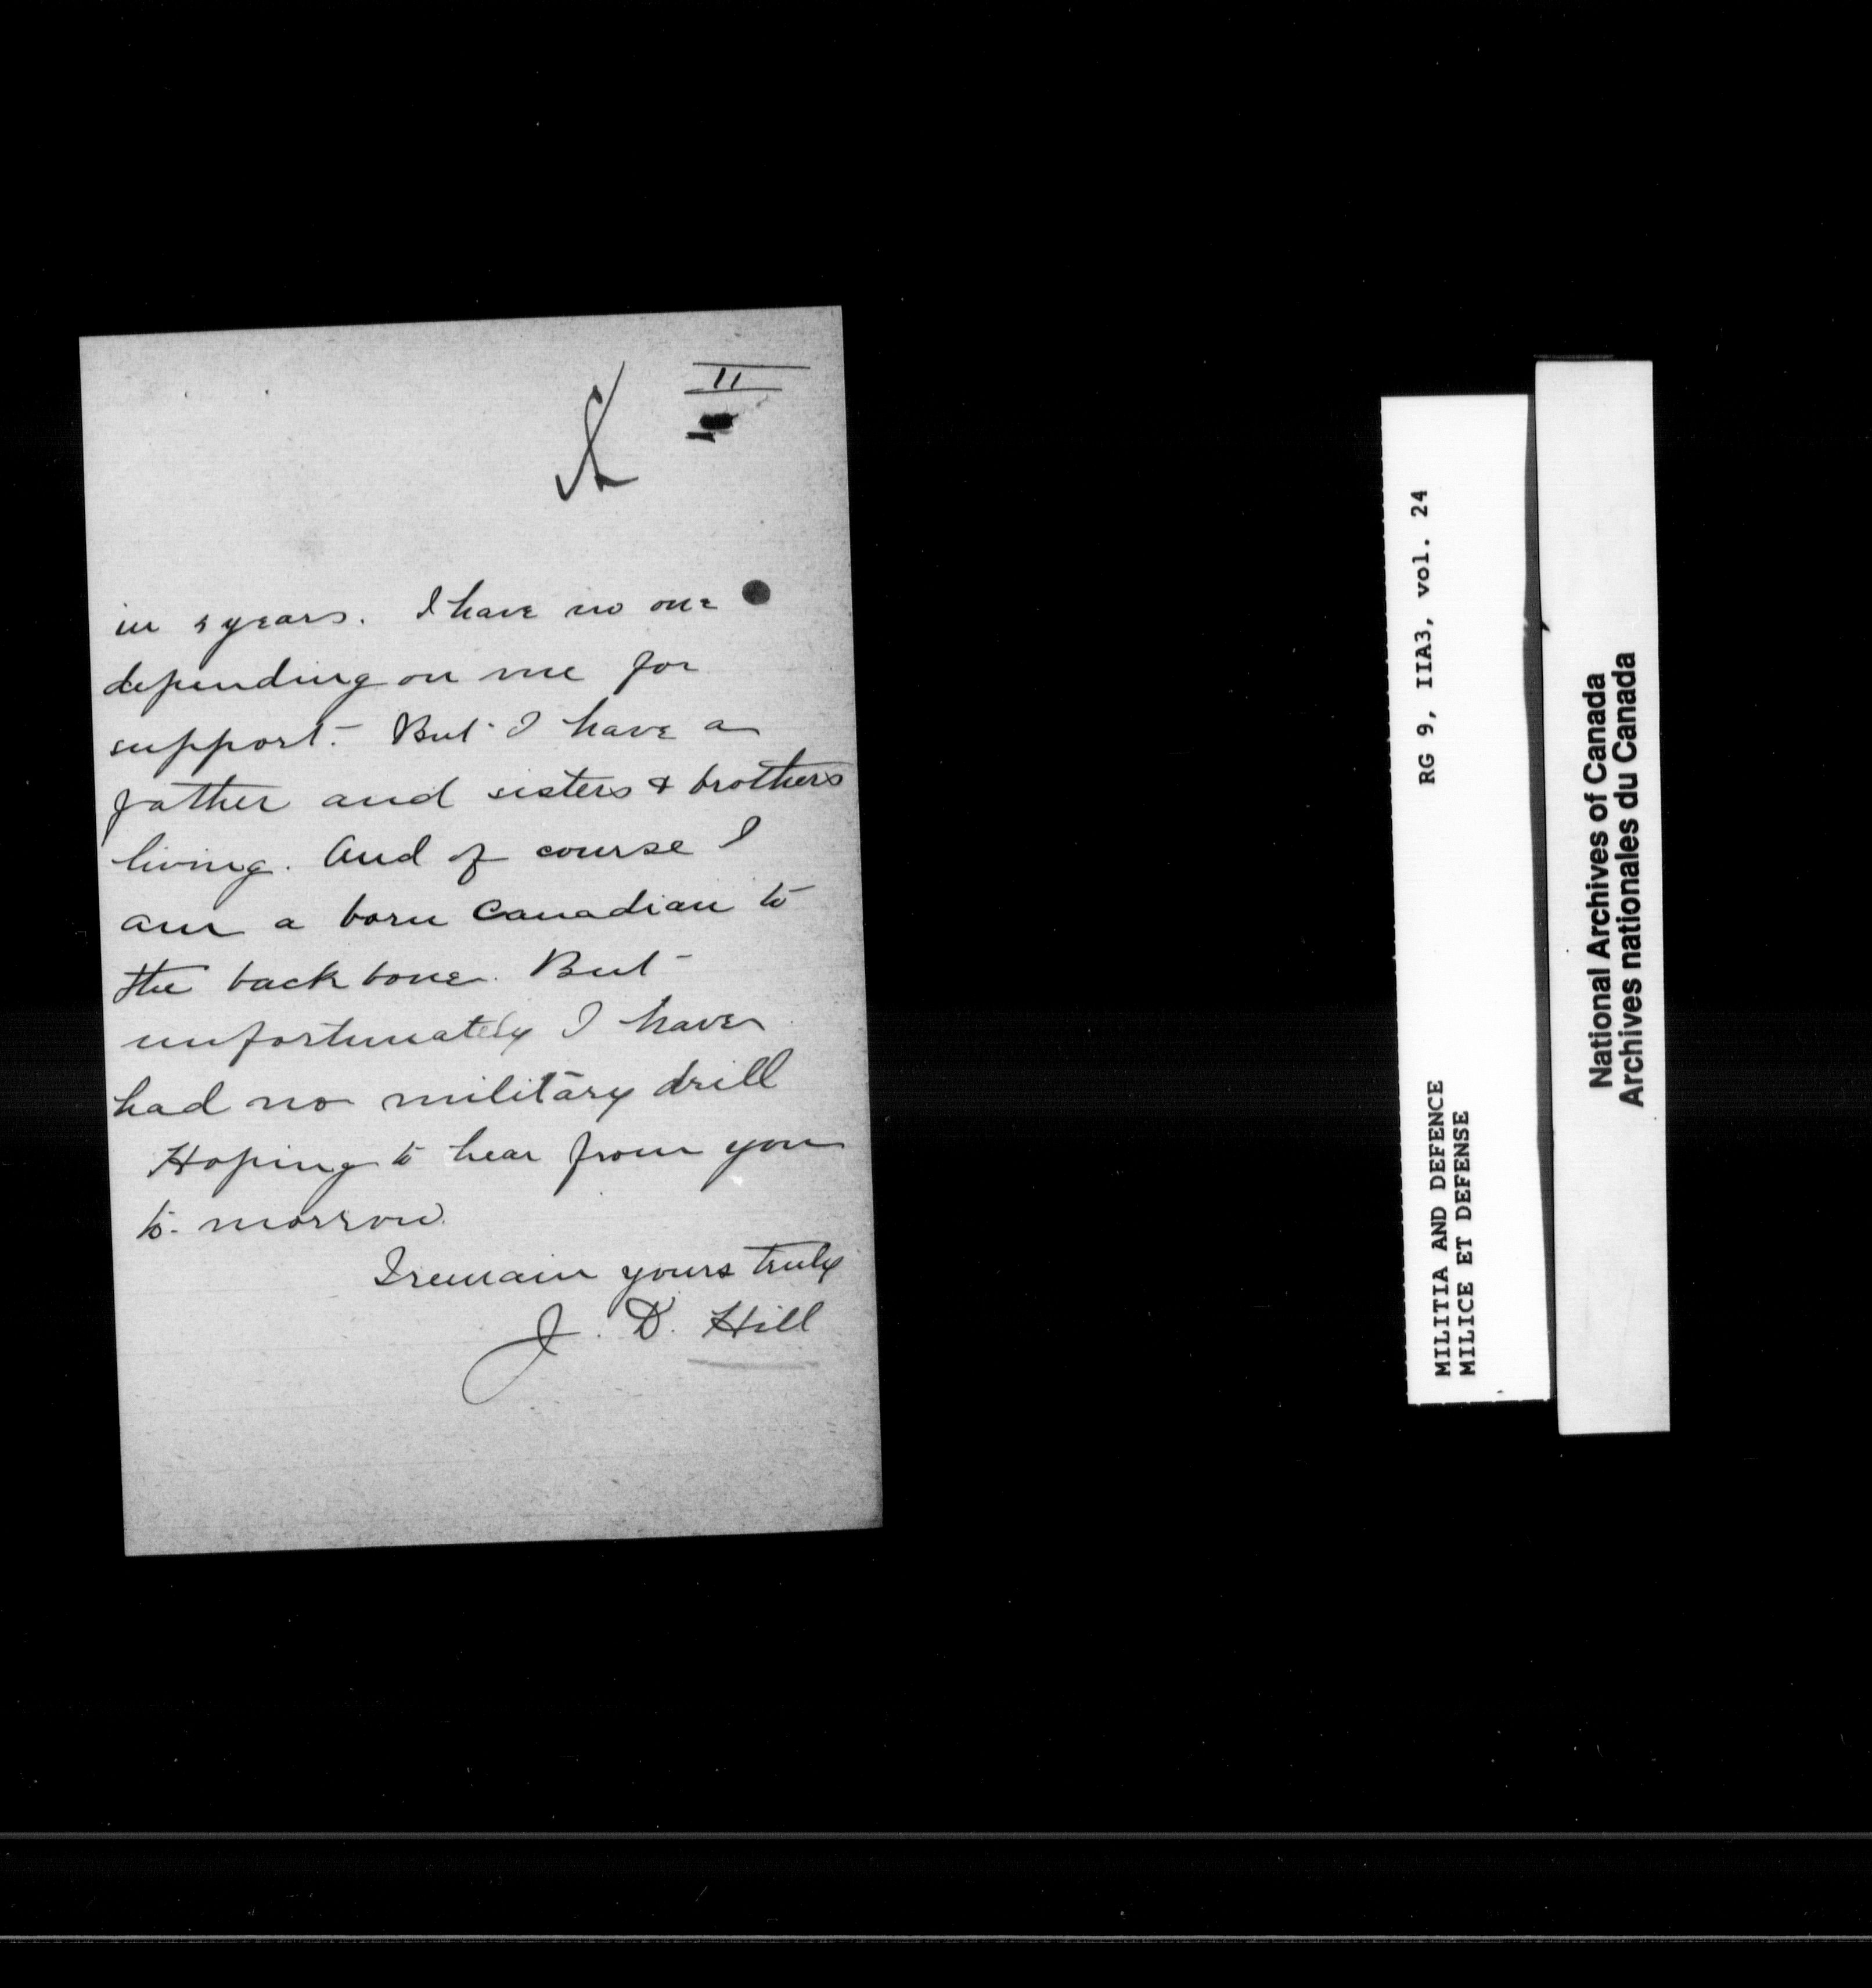 II
in 5 years. I have no one
depending on me for
support. But I have a
father and sisters & brothers
living. And of course I
am a born Canadian to
the back bone. But
unfortunately I have
had no military drill
Hoping to hear from you
to-morrow.
I remain yours truly
J. D. Hill
MILITIA AND DEFENCE RG 9, IIA3, vol. 24
MILICE ET DEFENSE
National Archives of Canada
Archives nationales du Canada